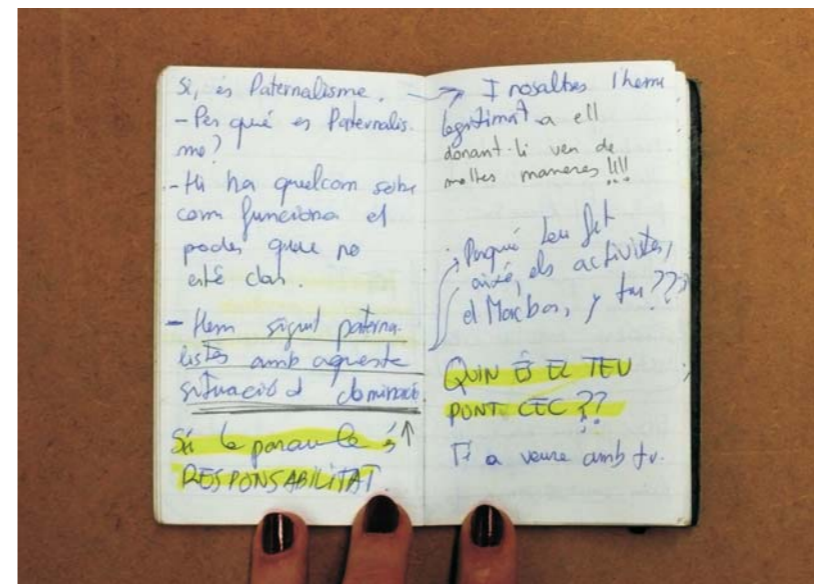 Si, és Paternalisme.
- Per qué es Paternalis-
me?
- Hi ha quelcom sobre
com funciona el
poder que no
esté clar.
- Hem sigut paterna-
listes amb aqueste
situació d dominació.
Si la paraula és
RESPONSABILITAT.
→ I nosaltres l'hem
legitimat a ell
donant-li veu de
moltes maneres !!!!
Perqué heu fet
aixó, els activistes,
el Macba, y tu???
QUIN ÉS EL TEU
PUNT CEC??
Té a veure amb tu.